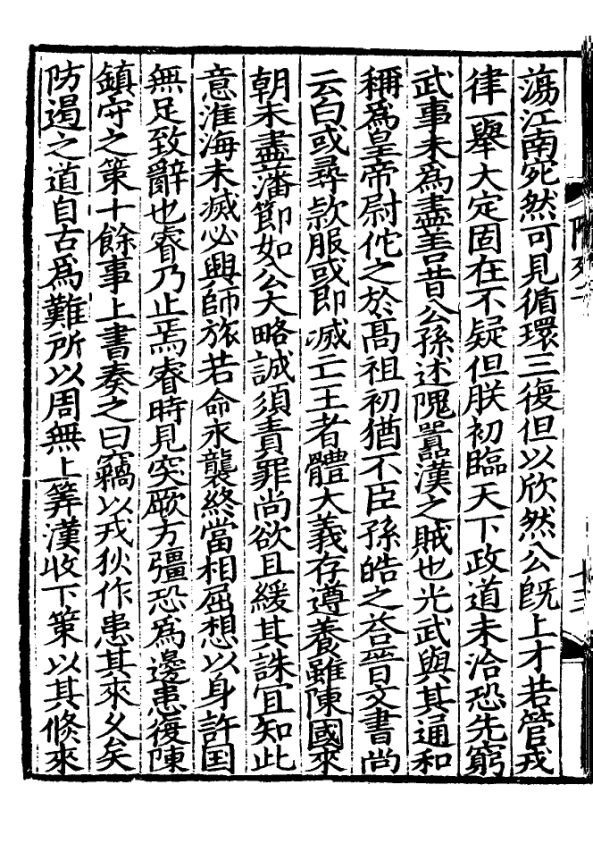 蕩江南宛然可見循環三復但以欣然公旣上才若管戎
律一舉大定固在不疑但朕初臨天下政道未洽恐先窮
武事未爲盡善昔公孫述隗囂漢之賊也光武與其通和
稱爲皇帝尉佗之於髙祖初猶不臣孫皓之荅晉文書尚
云白或尋款服或即滅亡王者體大義存遵養雖陳國來
朝未盡藩節如公大略誠須責罪尚欲且緩其誅宜知此
意淮海未滅必興師旅若命永襲終當相屈想以身許国
無足致辭也睿乃止焉睿時見突厥方彊恐爲邊患復陳
鎮守之策十餘事上書奏之曰竊以戎狄作患其來久矣
防遏之道自古爲難所以周無上筭漢收下策以其倏來